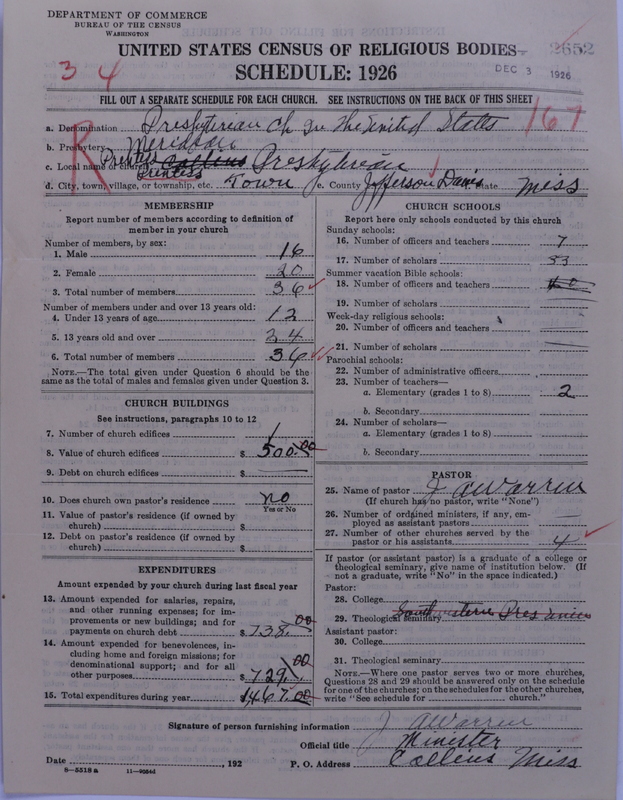 DEPARTMENT OF COMMERCE
BUREAU OF THE CENSUS
WASHINGTON
UNITED STATES CENSUS OF RELIGIOUS BODIES
2652
3 4
SCHEDULE: 1926
DEC 3 1926
FILL OUT A SEPARATE SCHEDULE FOR EACH CHURCH. SEE INSTRUCTIONS ON THE BACK OF THIS SHEET
167
R
a. Denomination Presbyterian Ch In The United States
b. Presbytery Meridian
c. Local name of church Prentiss Collins Presbyterian
Prentiss
d. City, town, village, or township, etc. Town e. County Jefferson Davis State Miss
MEMBERSHIP
Report number of members according to definition of
member in your church
Number of members, by sex:
1. Male 16
2. Female 20
3. Total number of members 36
Number of members under and over 13 years old:
4. Under 13 years of age 12
5. 13 years old and over 24
6. Total number of members 36
NOTE.—The total given under Question 6 should be the
same as the total of males and females given under Question 3.
CHURCH BUILDINGS
See instructions, paragraphs 10 to 12
7. Number of church edifices 1
8. Value of church edifices $ 500.00
9. Debt on church edifices $
10. Does church own pastor's residence no
Yes or No
11. Value of pastor's residence (if owned by
church) $
12. Debt on pastor's residence (if owned by
church) $
EXPENDITURES
Amount expended by your church during last fiscal year
13. Amount expended for salaries, repairs,
and other running expenses; for im-
provements or new buildings; and for
payments on church debt $ 738.00
14. Amount expended for benevolences, in-
cluding home and foreign missions; for
denominational support; and for all
other purposes $ 729.00
15. Total expenditures during year $ 1467.00
CHURCH SCHOOLS
Report here only schools conducted by this church
Sunday schools:
16. Number of officers and teachers 7
17. Number of scholars 53
Summer vacation Bible schools:
18. Number of officers and teachers
19. Number of scholars
Week-day religious schools:
20. Number of officers and teachers
21. Number of scholars
Parochial schools:
22. Number of administrative officers
23. Number of teachers—
a. Elementary (grades 1 to 8) 2
b. Secondary
24. Number of scholars—
a. Elementary (grades 1 to 8)
b. Secondary
PASTOR
25. Name of pastor J A Warren
(If church has no pastor, write "None")
26. Number of ordained ministers, if any, em-
ployed as assistant pastors
27. Number of other churches served by the
pastor or his assistants 4
If pastor (or assistant pastor) is a graduate of a college or
theological seminary, give name of institution below. (If
not a graduate, write "No" in the space indicated.)
Pastor:
28. College
29. Theological seminary Southwestern Pres
Assistant pastor:
30. College
31. Theological seminary
NOTE.—Where one pastor serves two or more churches,
Questions 28 and 29 should be answered only on the schedule
for one of the churches; on the schedules for the other churches,
write "See schedule for church."
Signature of person furnishing information J A Warren
Official title Minister
Date , 192 P. O. Address Collins Miss
8—5518 a